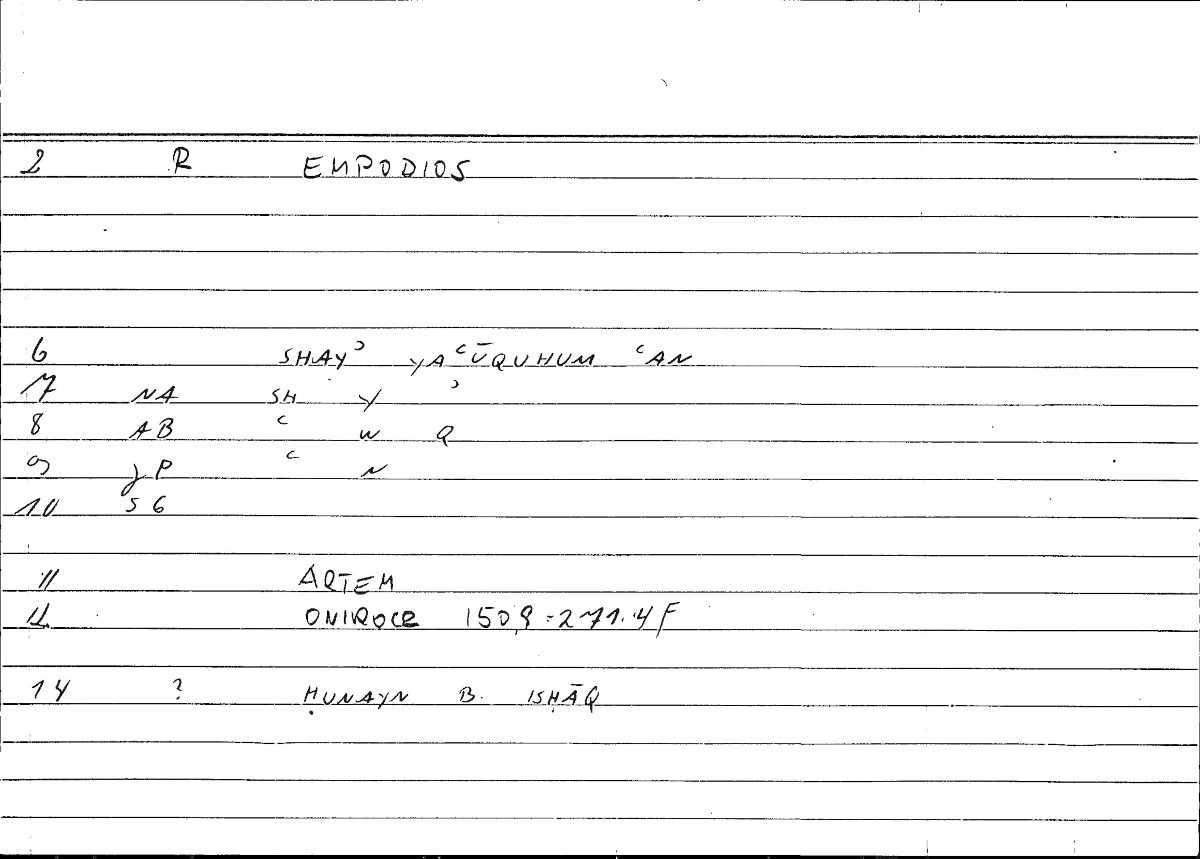 2 R EMPODIOS
6 SHAYʾ YAʿŪQUHUM ʿAN
7 NA SH Y ʾ
8 AB ʿ W Q
9 JP ʿ N
10 56
11 ARTEM
12 ONIROCR 150,8 = 271.4F
14 ? ḤUNAYN B. ISḤĀQ